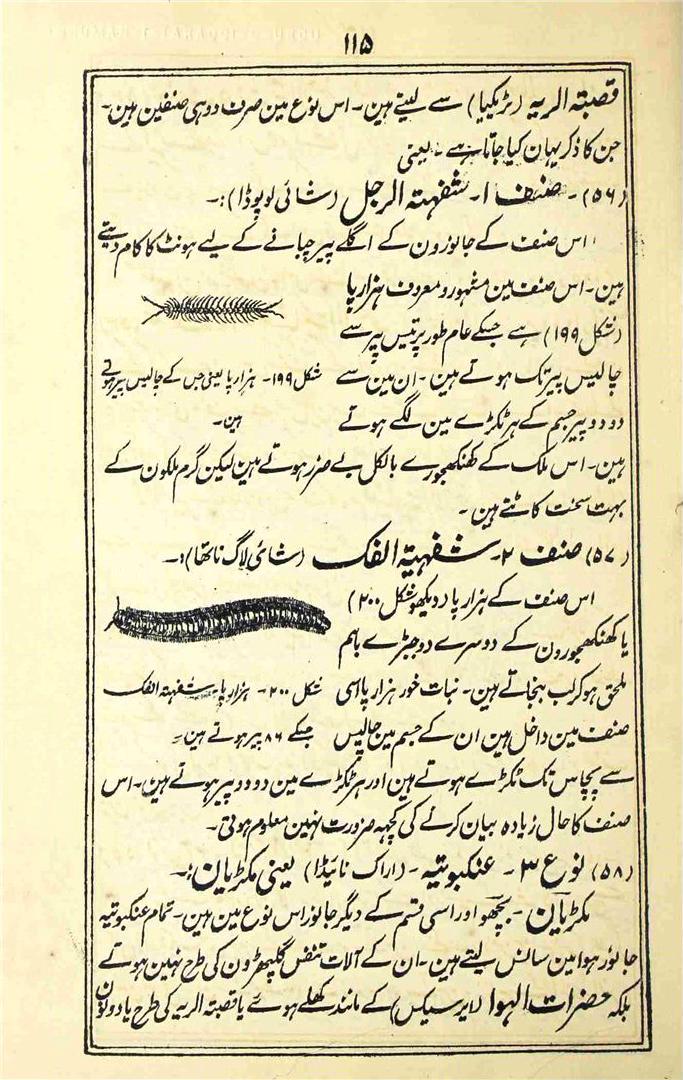 ۱۱۵
قصبتہ الریہ (ٹریکیا) سے لیتے ہین۔ اس نوع مین صرف دو ہی صنفین ہین۔
جن کا ذکر یہان کیا جاتا ہے۔ یعنی
(۵۶)۔ صنف ۱۔ شفہتہ الرجل (شائی لوپوڈا):۔
اس صنف کے جانورون کے اگلے پیر چبانے کے لیے ہونٹ کا کام دیتے
ہین۔ اس صنف مین مشہور و معروف ہزار پا
(شکل ۱۹۹) ہے جسکے عام طور پر تیس پیر سے
چالیس پیر تک ہوتے ہین۔ ان مین سے
دو دو پیر جسم کے ہر ٹکڑے مین لگے ہوتے
شکل ۱۹۹۔ ہزار پا یعنی جس کے چالیس پیر ہوتے
ہین۔
ہین۔ اس ملک کے کھنکھجورے بالکل بے ضرر ہوتے ہین لیکن گرم ملکون کے
بہت سخت کاٹتے ہین۔
(۵۷) صنف ۲۔ شفہیتہ الفک (شائی لاگ ناتھا):۔
اس صنف کے ہزار پا (دیکھو شکل ۲۰۰)
یا کھنکھجورون کے دوسرے دو جبڑے باہم
ملحق ہو کر لب بنجاتے ہین۔ نبات خور ہزار پا اسی
صنف مین داخل ہین ان کے جسم مین چالیس
شکل ۲۰۰۔ ہزار پا۔ شفہیتہ الفک
جسکے ۸۶ پیر ہوتے ہین۔
سے پچاس تک ٹکڑے ہوتے ہین اور ہر ٹکڑے مین دو دو پیر ہوتے ہین۔ اس
صنف کا حال زیادہ بیان کرنے کی کچہہ ضرورت نہین معلوم ہوتی۔
(۵۸) نوع ۳۔ عنکبوتیہ۔ (اراک نائیڈا) یعنی مکڑیان:۔
مکڑیان۔ بچھو اور اسی قسم کے دیگر جانور اس نوع مین ہین۔ تمام عنکبوتیہ
جانور ہوا مین سانس لیتے ہین۔ ان کے آلات تنفس گلپھڑون کی طرح نہین ہوتے
بلکہ حضرات الہوا (لایرسیکس) کے مانند کھلے ہوئے یا قصبتہ الریہ کی طرح یا دونون